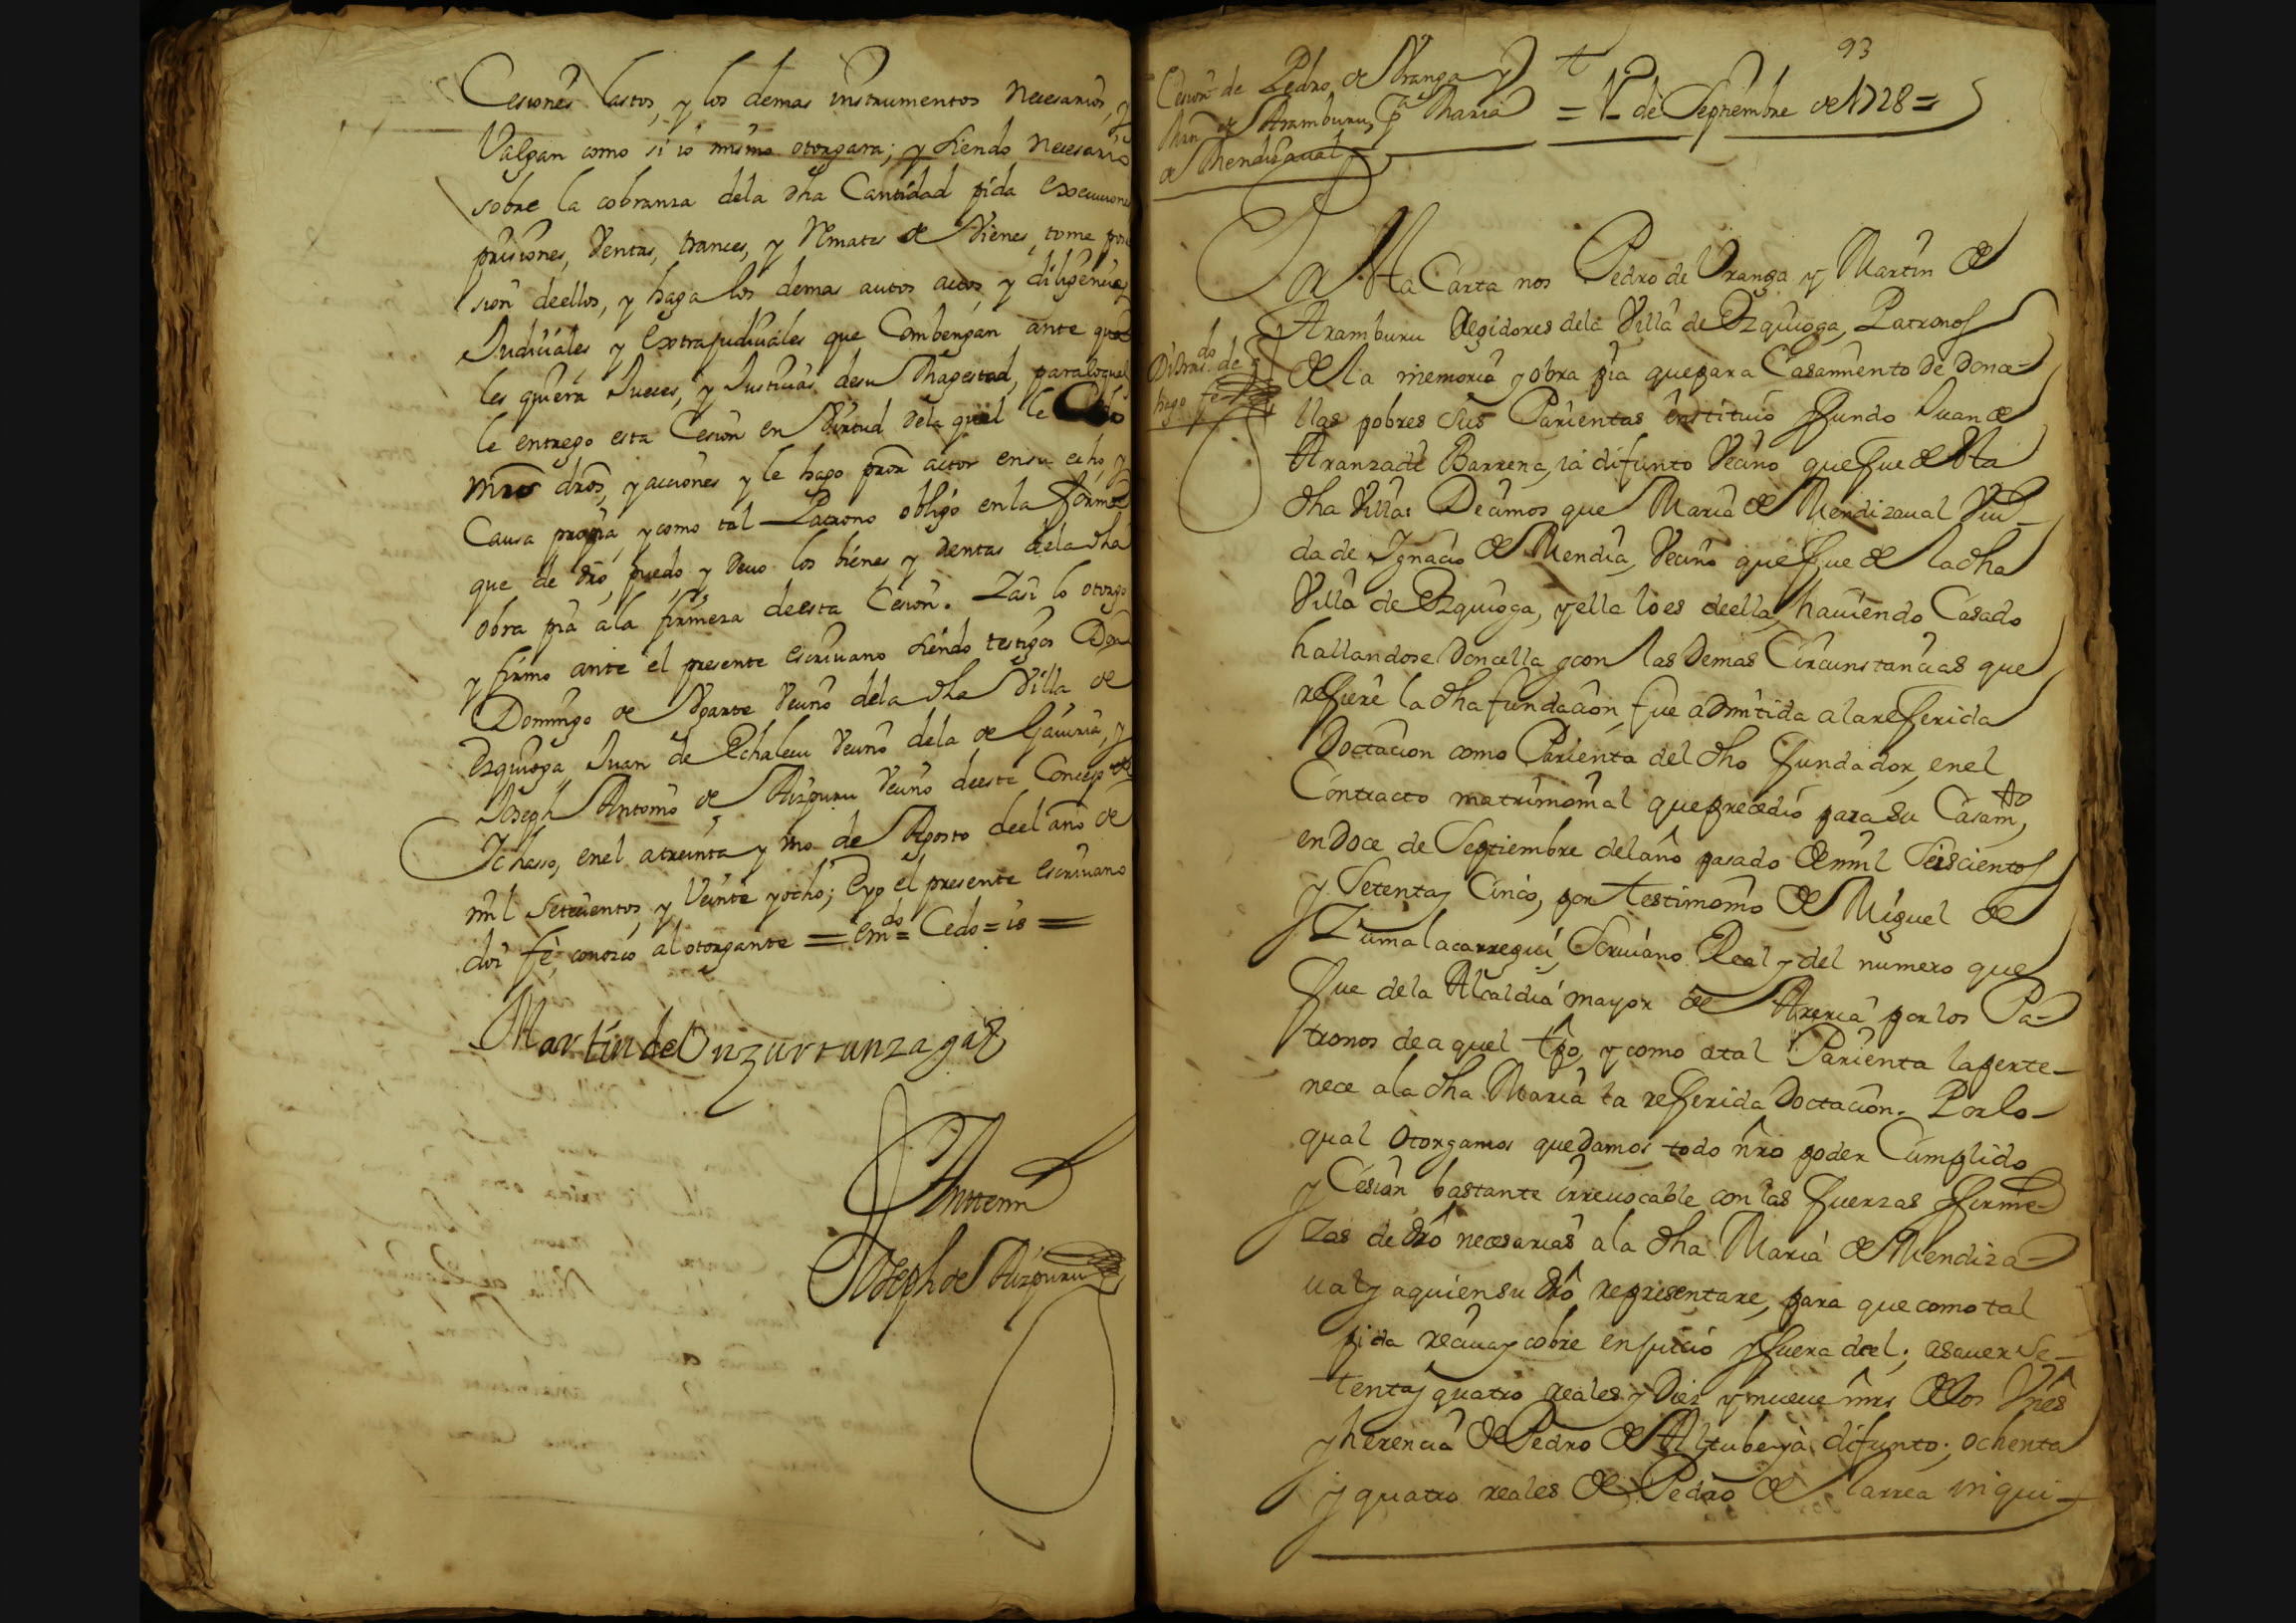 Cesiones lastos, y los demas instrumentos necesarios, y
Valgan como si io mismo otorgara; y siendo necesario
sobre la cobranza dela dha Cantidad pida execuciones
prisiones, Ventas, trances, y Rmates de Vienes, tome pose
sion deellos, y haga los demas autos actos, y diligencias
Judiciales, y extrajudiciales que Combengan ante quales
les quiera Jueces, y Justicias desu Magestad, paraloqual
le entrego esta Cesion en Virtud dela qual le Cedo
mros dros, y acciones y le hago pror actor ensu echo, y
Causa propia, y como tal Patrono obligo en la forma
que de dro, puedo, y deuo los bienes y Rentas dela dha
obra pia ala firmeza deesta Cesion. Iasi lo otorgo
y firmo ante el presente escriuano siendo testigos
Domingo de Ugarte Vecino dela dha Villa de
Ezquioga, Juan de Echaleu Vecino dela de Gauiria, y
Joseph Antonio de Aizpuru Vecino deesta Concejo de
Ichasso, enel atreinta y uno de Agosto deel año de
mil Setecientos, y Veinte yocho; Eyo el presente escriuano
doi fe, conozco al otorgante = emdo = Cedo = io =
Martin de Unzurrunzaga
Antemi
Joseph de Aizpuru
93
Cesion de Pedro de Vranga y
Mrn de Aramburu, Pa Maria
de Mendizaual
= 1 de Septiembre de 1728 =
Di trasdo de
hago fe
Pr Esta Carta nos Pedro de Vranga y Martin de
Aramburu Regidores dela Villa de Ezquioga, Patronos
de la memoria y obra pia quepara Casamiento de Donce-
llas pobres sus Parientas instituio y fundo Juan de
Aranzadi Barrena, ia difunto Vecino que fue de esta
dha Villa: Decimos que Maria de Mendizaual Viu-
da de Ignacio de Mendia, Vecino que fue de la dha
Villa de Ezquioga, yella lo es deella, hauiendo Casado
hallandose Doncella y con las Demas Circunstancias que
refiere la dha fundacion, fue admitida ala referida
Doctacion como Parienta del dho fundador, enel
Contracto matrimonial que precedio para su Casamto,
en Doce de Septiembre del año pasado de mil Seiscientos
y Setenta y Cinco, por testimonio de Miguel de
Zumalacarregui, Scriuano Real y del numero que
fue dela Alcaldia mayor de Areria por los Pa-
tronos de aquel tpo, y como atal Parienta la perte-
nece ala dha Maria la referida Doctacion. Por lo-
qual Otorgamos que Damos todo nro poder Cumplido
y Cesion bastante irreuocable con las fuerzas y firme-
zas de dro necesarias ala dha Maria de Mendiza-
ual y aquien su dro representare, para que como tal
pida reciua y cobre en juicio y fuera del; asauer Se-
tenta y quatro reales y Diez y nueue mrs de los Vnes
y herencia de Pedro de Altube ya difunto; ochenta
y quatro reales de Pedro de Larrea inqui-